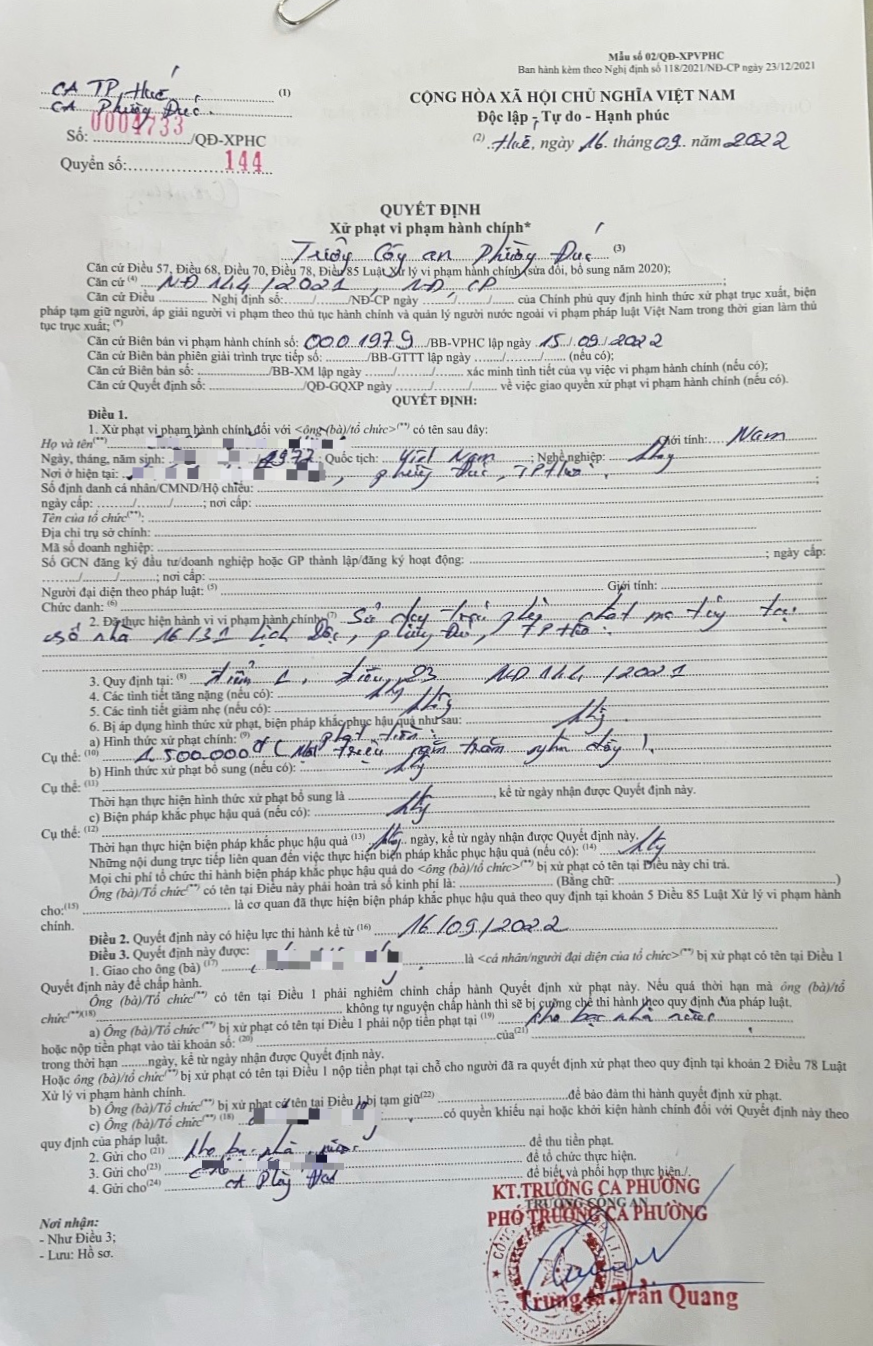 Mẫu số 02/QĐ-XPVPHC
Ban hành kèm theo Nghị định số 118/2021/NĐ-CP ngày 23/12/2021
CA TP. Huế (1)
CA Phường Đúc
CỘNG HÒA XÃ HỘI CHỦ NGHĨA VIỆT NAM
Độc lập - Tự do - Hạnh phúc
Số: 0004733 /QĐ-XPHC
(2) Huế, ngày 16 tháng 09 năm 2022
Quyển số: 144
QUYẾT ĐỊNH
Xử phạt vi phạm hành chính*
Trưởng Công an Phường Đúc (3)
Căn cứ Điều 57, Điều 68, Điều 70, Điều 78, Điều 85 Luật Xử lý vi phạm hành chính (sửa đổi, bổ sung năm 2020);
Căn cứ (4) NĐ 144/2021, NĐ CP ;
Căn cứ Điều ......... Nghị định số: ....../....../NĐ-CP ngày ....../....../...... của Chính phủ quy định hình thức xử phạt trục xuất, biện
pháp tạm giữ người, áp giải người vi phạm theo thủ tục hành chính và quản lý người nước ngoài vi phạm pháp luật Việt Nam trong thời gian làm thủ
tục trục xuất; (*)
Căn cứ Biên bản vi phạm hành chính số: 0001979 /BB-VPHC lập ngày 15/09/2022
Căn cứ Biên bản phiên giải trình trực tiếp số: ........./BB-GTTT lập ngày ....../....../...... (nếu có);
Căn cứ Biên bản số: ........./BB-XM lập ngày ....../....../...... xác minh tình tiết của vụ việc vi phạm hành chính (nếu có);
Căn cứ Quyết định số: ........./QĐ-GQXP ngày ....../....../...... về việc giao quyền xử phạt vi phạm hành chính (nếu có).
QUYẾT ĐỊNH:
Điều 1.
1. Xử phạt vi phạm hành chính đối với <ông (bà)/tổ chức>(**) có tên sau đây:
Họ và tên(**) Giới tính: Nam
Ngày, tháng, năm sinh: 1972; Quốc tịch: Việt Nam; Nghề nghiệp: Không
Nơi ở hiện tại: , phường Đúc, TP Huế.
Số định danh cá nhân/CMND/Hộ chiếu: ;
ngày cấp: ....../....../......; nơi cấp:
Tên của tổ chức(**):
Địa chỉ trụ sở chính:
Mã số doanh nghiệp:
Số GCN đăng ký đầu tư/doanh nghiệp hoặc GP thành lập/đăng ký hoạt động: ; ngày cấp:
....../....../......; nơi cấp:
Người đại diện theo pháp luật: (5) Giới tính:
Chức danh: (6)
2. Đã thực hiện hành vi vi phạm hành chính: (7) Sử dụng trái phép chất ma túy tại
số nhà 16/31 Lịch Đợi, phường Đúc, TP Huế.
3. Quy định tại: (8) điểm 1, điều 23 NĐ 144/2021
4. Các tình tiết tăng nặng (nếu có): Không
5. Các tình tiết giảm nhẹ (nếu có): Không
6. Bị áp dụng hình thức xử phạt, biện pháp khắc phục hậu quả như sau: Không
a) Hình thức xử phạt chính: (9) phạt tiền
Cụ thể: (10) 1.500.000đ (Một triệu năm trăm nghìn đồng).
b) Hình thức xử phạt bổ sung (nếu có): Không
Cụ thể: (11)
Thời hạn thực hiện hình thức xử phạt bổ sung là ........., kể từ ngày nhận được Quyết định này.
c) Biện pháp khắc phục hậu quả (nếu có): Không
Cụ thể: (12)
Thời hạn thực hiện biện pháp khắc phục hậu quả (13) Không ngày, kể từ ngày nhận được Quyết định này.
Những nội dung trực tiếp liên quan đến việc thực hiện biện pháp khắc phục hậu quả (nếu có): (14) Không
Mọi chi phí tổ chức thi hành biện pháp khắc phục hậu quả do <ông (bà)/tổ chức>(**) bị xử phạt có tên tại Điều này chi trả.
Ông (bà)/Tổ chức(**) có tên tại Điều này phải hoàn trả số kinh phí là: ......... (Bằng chữ: .........)
cho:(15) ......... là cơ quan đã thực hiện biện pháp khắc phục hậu quả theo quy định tại khoản 5 Điều 85 Luật Xử lý vi phạm hành
chính.
Điều 2. Quyết định này có hiệu lực thi hành kể từ (16) 16/09/2022
Điều 3. Quyết định này được:
1. Giao cho ông (bà) (17) là <cá nhân/người đại diện của tổ chức>(**) bị xử phạt có tên tại Điều 1
Quyết định này để chấp hành.
Ông (bà)/Tổ chức(**) có tên tại Điều 1 phải nghiêm chỉnh chấp hành Quyết định xử phạt này. Nếu quá thời hạn mà ông (bà)/tổ
chức(**)(18) ......... không tự nguyện chấp hành thì sẽ bị cưỡng chế thi hành theo quy định của pháp luật.
a) Ông (bà)/Tổ chức(**) bị xử phạt có tên tại Điều 1 phải nộp tiền phạt tại (19) kho bạc nhà nước
hoặc nộp tiền phạt vào tài khoản số: (20) ......... của(21)
trong thời hạn ........ngày, kể từ ngày nhận được Quyết định này.
Hoặc ông (bà)/tổ chức(**) bị xử phạt có tên tại Điều 1 nộp tiền phạt tại chỗ cho người đã ra quyết định xử phạt theo quy định tại khoản 2 Điều 78 Luật
Xử lý vi phạm hành chính.
b) Ông (bà)/Tổ chức(**) bị xử phạt có tên tại Điều 1 bị tạm giữ(22) ......... để bảo đảm thi hành quyết định xử phạt.
c) Ông (bà)/Tổ chức(**) (18) có quyền khiếu nại hoặc khởi kiện hành chính đối với Quyết định này theo
quy định của pháp luật.
2. Gửi cho (21) kho bạc nhà nước để thu tiền phạt.
3. Gửi cho(23) để tổ chức thực hiện.
4. Gửi cho(24) CA Phường Đúc để biết và phối hợp thực hiện./.
Nơi nhận:
- Như Điều 3;
- Lưu: Hồ sơ.
KT.TRƯỞNG CA PHƯỜNG
TRƯỞNG CÔNG AN
PHÓ TRƯỞNG CA PHƯỜNG
Trung tá.Trần Quang